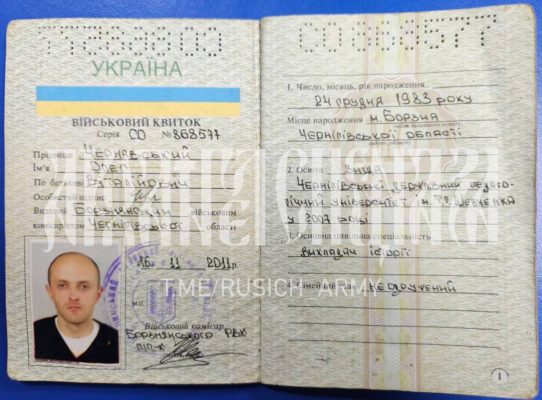 УКРАЇНА
ВІЙСЬКОВИЙ КВИТОК
Серія СО № 868577
Прізвище Чернявський
Ім'я Олег
По батькові Віталійович
Особистий підпис
Виданий Борзнянським військовим
комісаріатом Чернігівської області
16 11 2011р.
М.П.
Військовий комісар
Борзнянського РВК
п/п-к
СО 868577
1. Число, місяць, рік народження
24 грудня 1983 року
Місце народження м. Борзна
Чернігівської області
2. Освіта Вища
Чернігівський державний педаго-
гічний університет ім. Т.Г. Шевченка
у 2007 році
3. Основна цивільна спеціальність
викладач історії
4. Сімейний стан неодружений
1
T.ME/RUSICH_ARMY